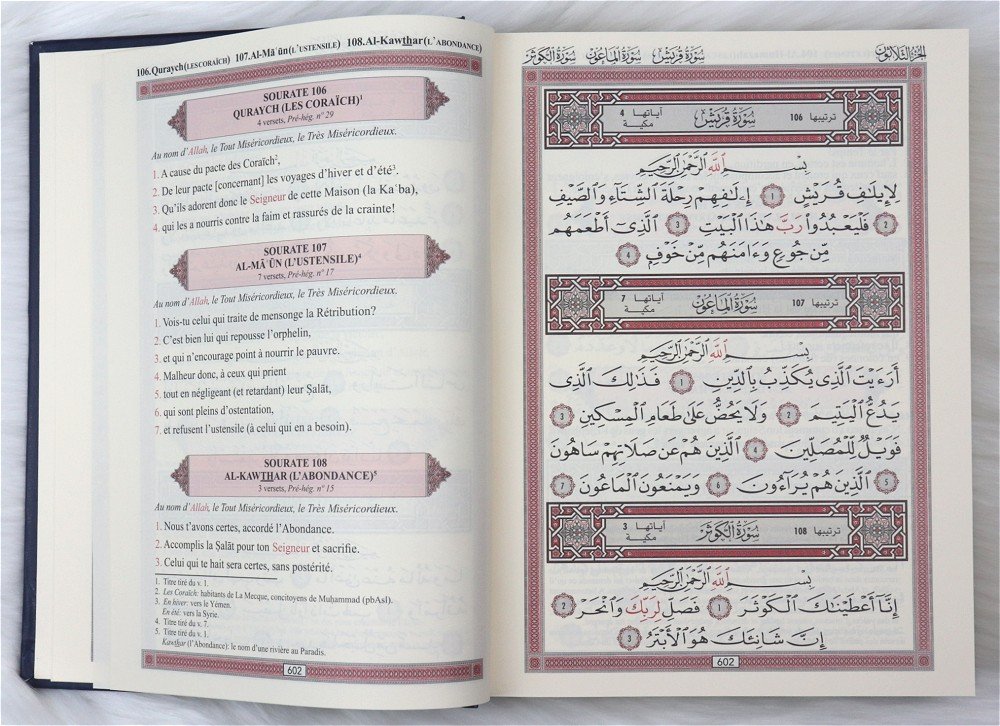 106.Quraych(LESCORAÏCH) 107.Al-Mā`ūn(L'USTENSILE) 108.Al-Kawthar(L'ABONDANCE)
SOURATE 106
QURAYCH (LES CORAÏCH)¹
4 versets, Pré-hég. n° 29
Au nom d'Allah, le Tout Miséricordieux, le Très Miséricordieux.
1. A cause du pacte des Coraïch²,
2. De leur pacte [concernant] les voyages d'hiver et d'été³.
3. Qu'ils adorent donc le Seigneur de cette Maison (la Ka`ba),
4. qui les a nourris contre la faim et rassurés de la crainte!
SOURATE 107
AL-MĀ`ŪN (L'USTENSILE)⁴
7 versets, Pré-hég. n° 17
Au nom d'Allah, le Tout Miséricordieux, le Très Miséricordieux.
1. Vois-tu celui qui traite de mensonge la Rétribution?
2. C'est bien lui qui repousse l'orphelin,
3. et qui n'encourage point à nourrir le pauvre.
4. Malheur donc, à ceux qui prient
5. tout en négligeant (et retardant) leur Ṣalāt,
6. qui sont pleins d'ostentation,
7. et refusent l'ustensile (à celui qui en a besoin).
SOURATE 108
AL-KAWTHAR (L'ABONDANCE)⁵
3 versets, Pré-hég. n° 15
Au nom d'Allah, le Tout Miséricordieux, le Très Miséricordieux.
1. Nous t'avons certes, accordé l'Abondance.
2. Accomplis la Ṣalāt pour ton Seigneur et sacrifie.
3. Celui qui te hait sera certes, sans postérité.
1. Titre tiré du v. 1.
2. Les Coraïch: habitants de La Mecque, concitoyens de Muḥammad (pbAsl).
3. En hiver: vers le Yémen.
En été: vers la Syrie.
4. Titre tiré du v. 7.
5. Titre tiré du v. 1.
Kawthar (l'Abondance): le nom d'une rivière au Paradis.
602
الجزء الثلاثون سورة قريش سورة الماعون سورة الكوثر
ترتيبها 106 سُورَةُ قُرَيْشٍ آياتها 4 مكية
بِسْمِ اللَّهِ الرَّحْمَٰنِ الرَّحِيمِ
لِإِيلَٰفِ قُرَيْشٍ ١ إِۦلَٰفِهِمْ رِحْلَةَ الشِّتَآءِ وَالصَّيْفِ
٢ فَلْيَعْبُدُوا۟ رَبَّ هَٰذَا الْبَيْتِ ٣ الَّذِىٓ أَطْعَمَهُم
مِّن جُوعٍ وَءَامَنَهُم مِّنْ خَوْفٍۭ ٤
ترتيبها 107 سُورَةُ الْمَاعُونِ آياتها 7 مكية
بِسْمِ اللَّهِ الرَّحْمَٰنِ الرَّحِيمِ
أَرَءَيْتَ الَّذِى يُكَذِّبُ بِالدِّينِ ١ فَذَٰلِكَ الَّذِى
يَدُعُّ الْيَتِيمَ ٢ وَلَا يَحُضُّ عَلَىٰ طَعَامِ الْمِسْكِينِ ٣
فَوَيْلٌ لِّلْمُصَلِّينَ ٤ الَّذِينَ هُمْ عَن صَلَاتِهِمْ سَاهُونَ
٥ الَّذِينَ هُمْ يُرَآءُونَ ٦ وَيَمْنَعُونَ الْمَاعُونَ ٧
ترتيبها 108 سُورَةُ الْكَوْثَرِ آياتها 3 مكية
بِسْمِ اللَّهِ الرَّحْمَٰنِ الرَّحِيمِ
إِنَّآ أَعْطَيْنَٰكَ الْكَوْثَرَ ١ فَصَلِّ لِرَبِّكَ وَانْحَرْ ٢
إِنَّ شَانِئَكَ هُوَ الْأَبْتَرُ ٣
602